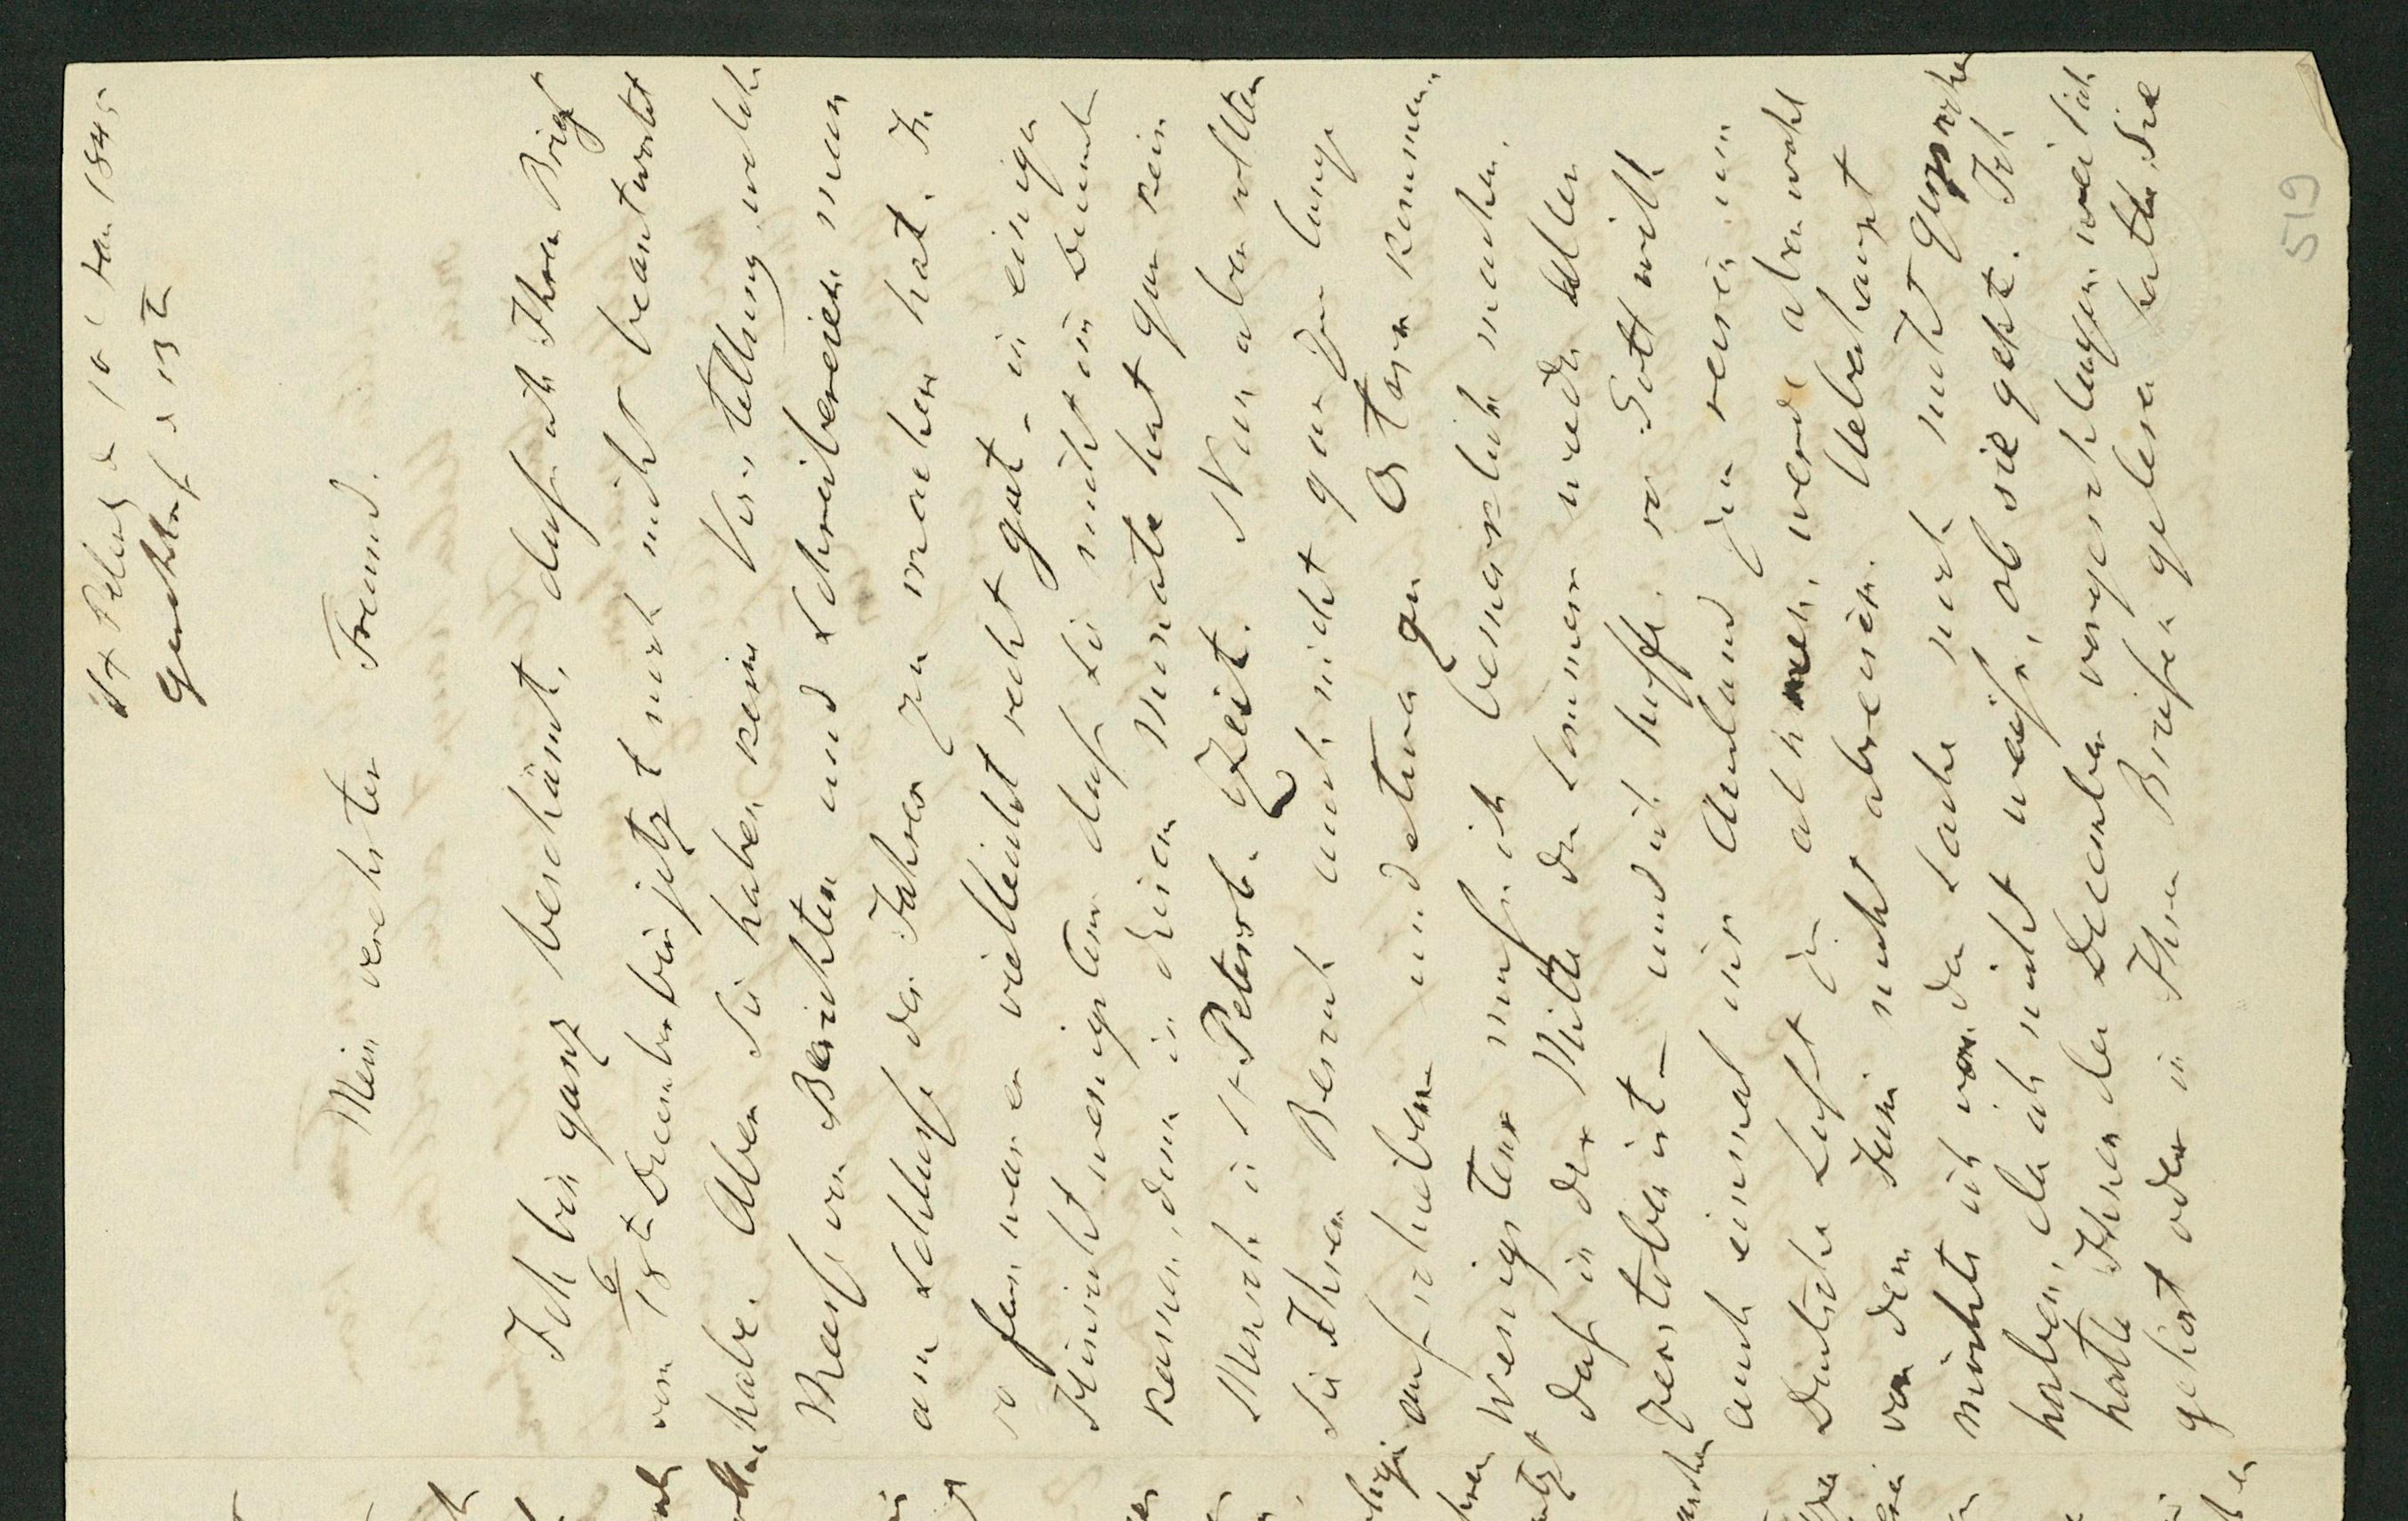 St Petersb d 10 Jan 1845
d 13t
Mein verehrter Freund.
Ich bin ganz beschämt, dass ich Ihren Brief
vom 6/18t December bis jetzt noch nicht beantwortet
habe. Aber Sie haben keine Vorstellung, welche
Masse von Berichten und Schreibereien man
am Schlusse des Jahres zu machen hat. In
so fern war es vielleicht recht gut, in einiger
Hinsicht wenigstens dass Sie nicht im Decemb
kamen, denn in diesem Monate hat gar kein
Mensch in St Petersb. Zeit. Nun aber sollten
Sie Ihren Besuch auch nicht gar zu lange
aufschieben und etwa zu Ostern kommen.
Wenigstens muss ich bemerklich machen,
dass in der Mitte des Sommers wieder Alles
zerstoben ist – und ich hoffe, so Gott will
auch einmal ins Ausland zu reisen um
Deutsche Luft zu athmen, werde aber wohl
vor dem Juni nicht abreisen. Ueberhaupt
möchte ich von der Sache noch nicht gesprochen
haben, da ich nicht weiss, ob sie geht. Ich
hatte Ihnen den December vorgeschlagen weil ich
gehört oder in Ihren Briefen gelesen hatte, Sie
519